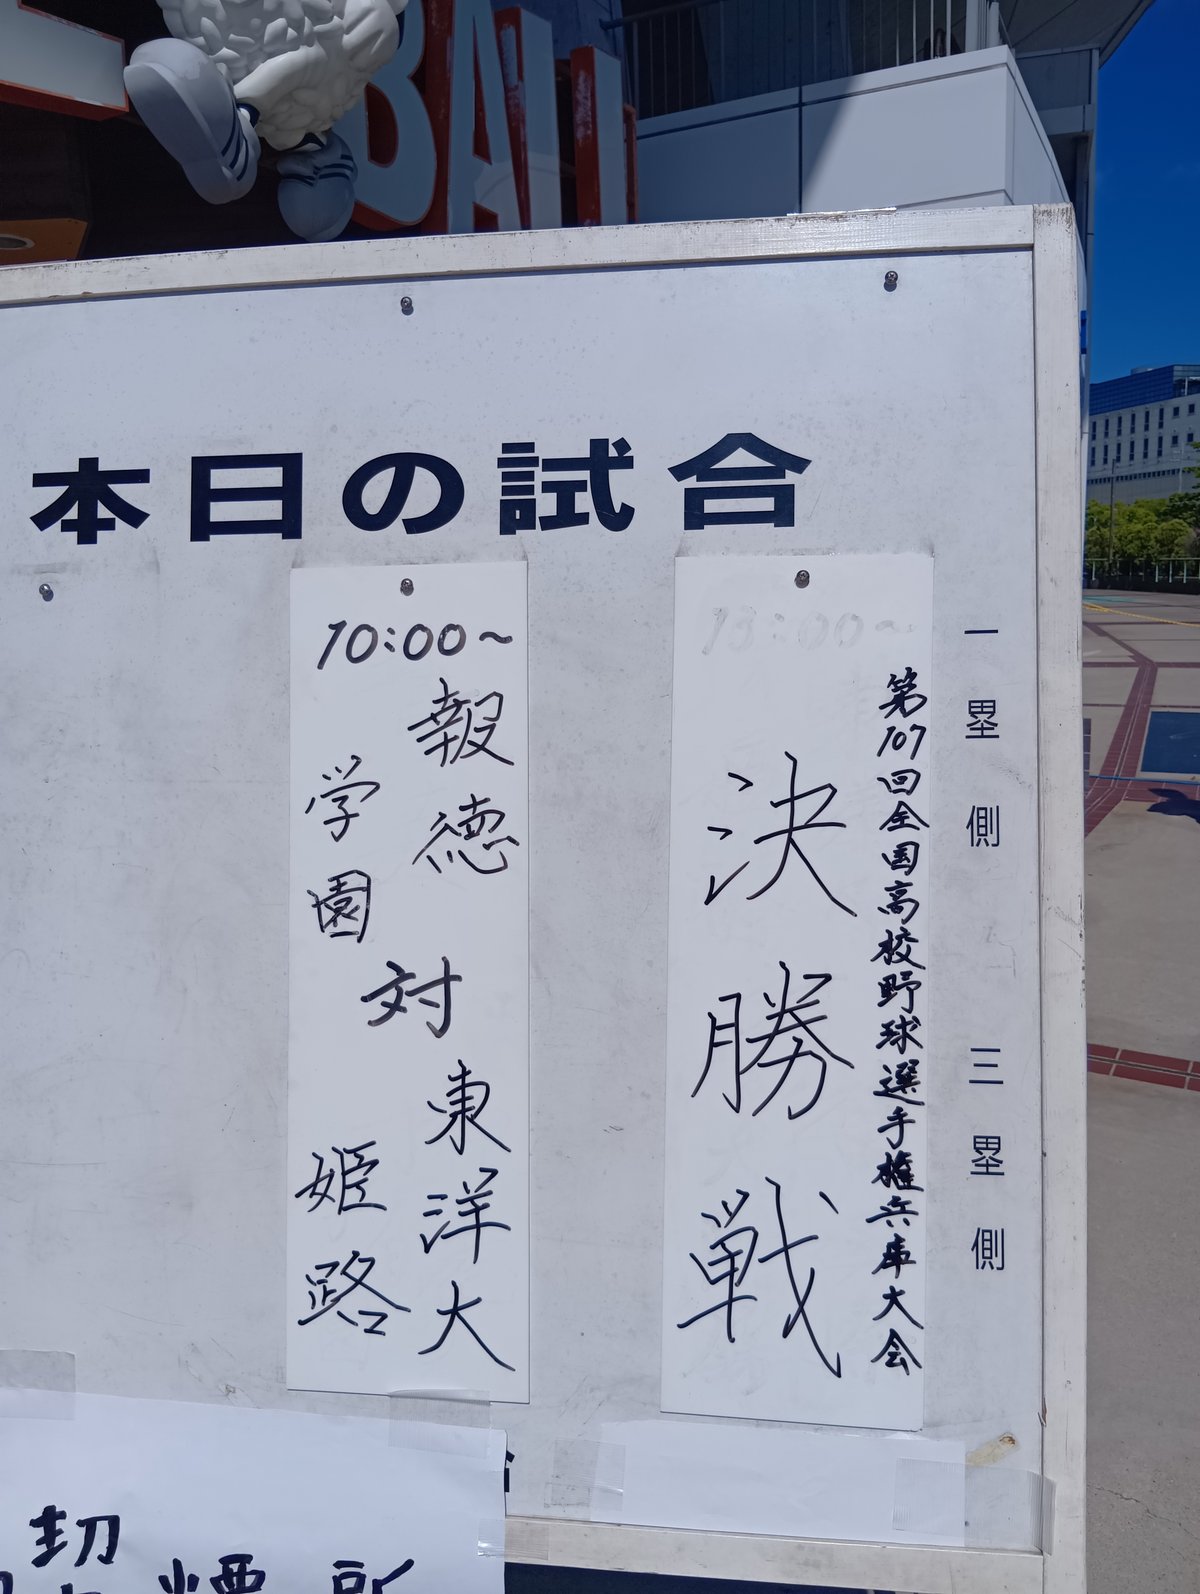 BALL
本日の試合
一塁側 三塁側
第107回全国高校野球選手権兵庫大会
決勝戦
10:00~
報徳
学園
対
東洋大
姫路